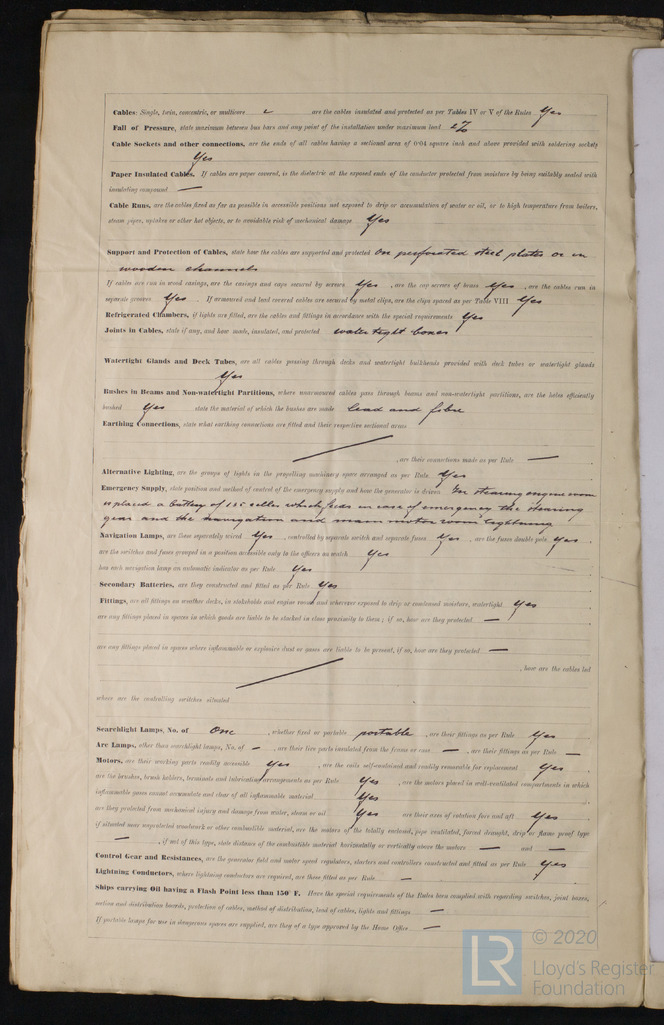 Cables: Single, twin, concentric, or multicore 2 are the cables insulated and protected as per Tables IV or V of the Rules Yes
Fall of Pressure, state maximum between bus bars and any point of the installation under maximum load 2%
Cable Sockets and other connections, are the ends of all cables having a sectional area of 0·04 square inch and above provided with soldering sockets
Yes
Paper Insulated Cables. If cables are paper covered, is the dielectric at the exposed ends of the conductor protected from moisture by being suitably sealed with
insulating compound —
Cable Runs, are the cables fixed as far as possible in accessible positions not exposed to drip or accumulation of water or oil, or to high temperature from boilers,
steam pipes, uptakes or other hot objects, or to avoidable risk of mechanical damage Yes
Support and Protection of Cables, state how the cables are supported and protected On perforated steel plates or in
wooden channels
If cables are run in wood casings, are the casings and caps secured by screws Yes, are the cap screws of brass Yes, are the cables run in
separate grooves Yes. If armoured and lead covered cables are secured by metal clips, are the clips spaced as per Table VIII Yes
Refrigerated Chambers, if lights are fitted, are the cables and fittings in accordance with the special requirements Yes
Joints in Cables, state if any, and how made, insulated, and protected watertight boxes
Watertight Glands and Deck Tubes, are all cables passing through decks and watertight bulkheads provided with deck tubes or watertight glands
Yes
Bushes in Beams and Non-watertight Partitions, where unarmoured cables pass through beams and non-watertight partitions, are the holes efficiently
bushed Yes state the material of which the bushes are made lead and fibre
Earthing Connections, state what earthing connections are fitted and their respective sectional areas
, are their connections made as per Rule —
Alternative Lighting, are the groups of lights in the propelling machinery space arranged as per Rule Yes
Emergency Supply, state position and method of control of the emergency supply and how the generator is driven In steering engine room
is placed a battery of 115 cells which feeds in case of emergency the steering
gear and the navigation and main motor room lightning
Navigation Lamps, are these separately wired Yes, controlled by separate switch and separate fuses Yes, are the fuses double pole Yes,
are the switches and fuses grouped in a position accessible only to the officers on watch Yes
has each navigation lamp an automatic indicator as per Rule Yes
Secondary Batteries, are they constructed and fitted as per Rule Yes
Fittings, are all fittings on weather decks, in stokeholds and engine rooms and wherever exposed to drip or condensed moisture, watertight Yes
are any fittings placed in spaces in which goods are liable to be stacked in close proximity to them; if so, how are they protected —
are any fittings placed in spaces where inflammable or explosive dust or gases are liable to be present, if so, how are they protected —
, how are the cables led
where are the controlling switches situated
Searchlight Lamps, No. of One, whether fixed or portable portable, are their fittings as per Rule Yes
Arc Lamps, other than searchlight lamps, No. of —, are their live parts insulated from the frame or case —, are their fittings as per Rule —
Motors, are their working parts readily accessible Yes, are the coils self-contained and readily removable for replacement Yes
are the brushes, brush holders, terminals and lubricating arrangements as per Rule Yes, are the motors placed in well-ventilated compartments in which
inflammable gases cannot accumulate and clear of all inflammable material Yes
are they protected from mechanical injury and damage from water, steam or oil Yes are their axes of rotation fore and aft Yes
if situated near unprotected woodwork or other combustible material, are the motors of the totally enclosed, pipe ventilated, forced draught, drip or flame proof type
—, if not of this type, state distance of the combustible material horizontally or vertically above the motors — and —
Control Gear and Resistances, are the generator field and motor speed regulators, starters and controllers constructed and fitted as per Rule Yes
Lightning Conductors, where lightning conductors are required, are these fitted as per Rule —
Ships carrying Oil having a Flash Point less than 150° F. Have the special requirements of the Rules been complied with regarding switches, joint boxes,
section and distribution boards, protection of cables, method of distribution, lead of cables, lights and fittings —
If portable lamps for use in dangerous spaces are supplied, are they of a type approved by the Home Office —
LR © 2020
Lloyd's Register
Foundation